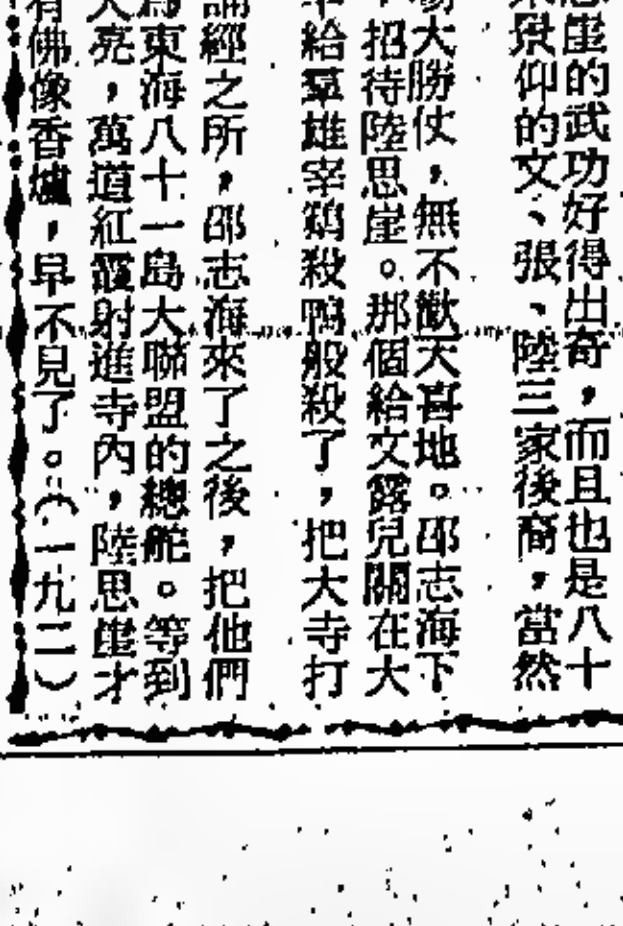 崖的武功好得出奇，而且也是八十
景仰的文、張、陸三家後裔，當然
大勝仗，無不歡天喜地。邵志海下
招待陸思崖。那個給文露兒關在大
給羣雄宰鷄殺鴨般殺了，把大寺打
誦經之所，邵志海來了之後，把他們
為東海八十一島大聯盟的總舵。等到
大亮，萬道紅霞射進寺內，陸思崖才
有佛像香爐，早不見了。（一九二）